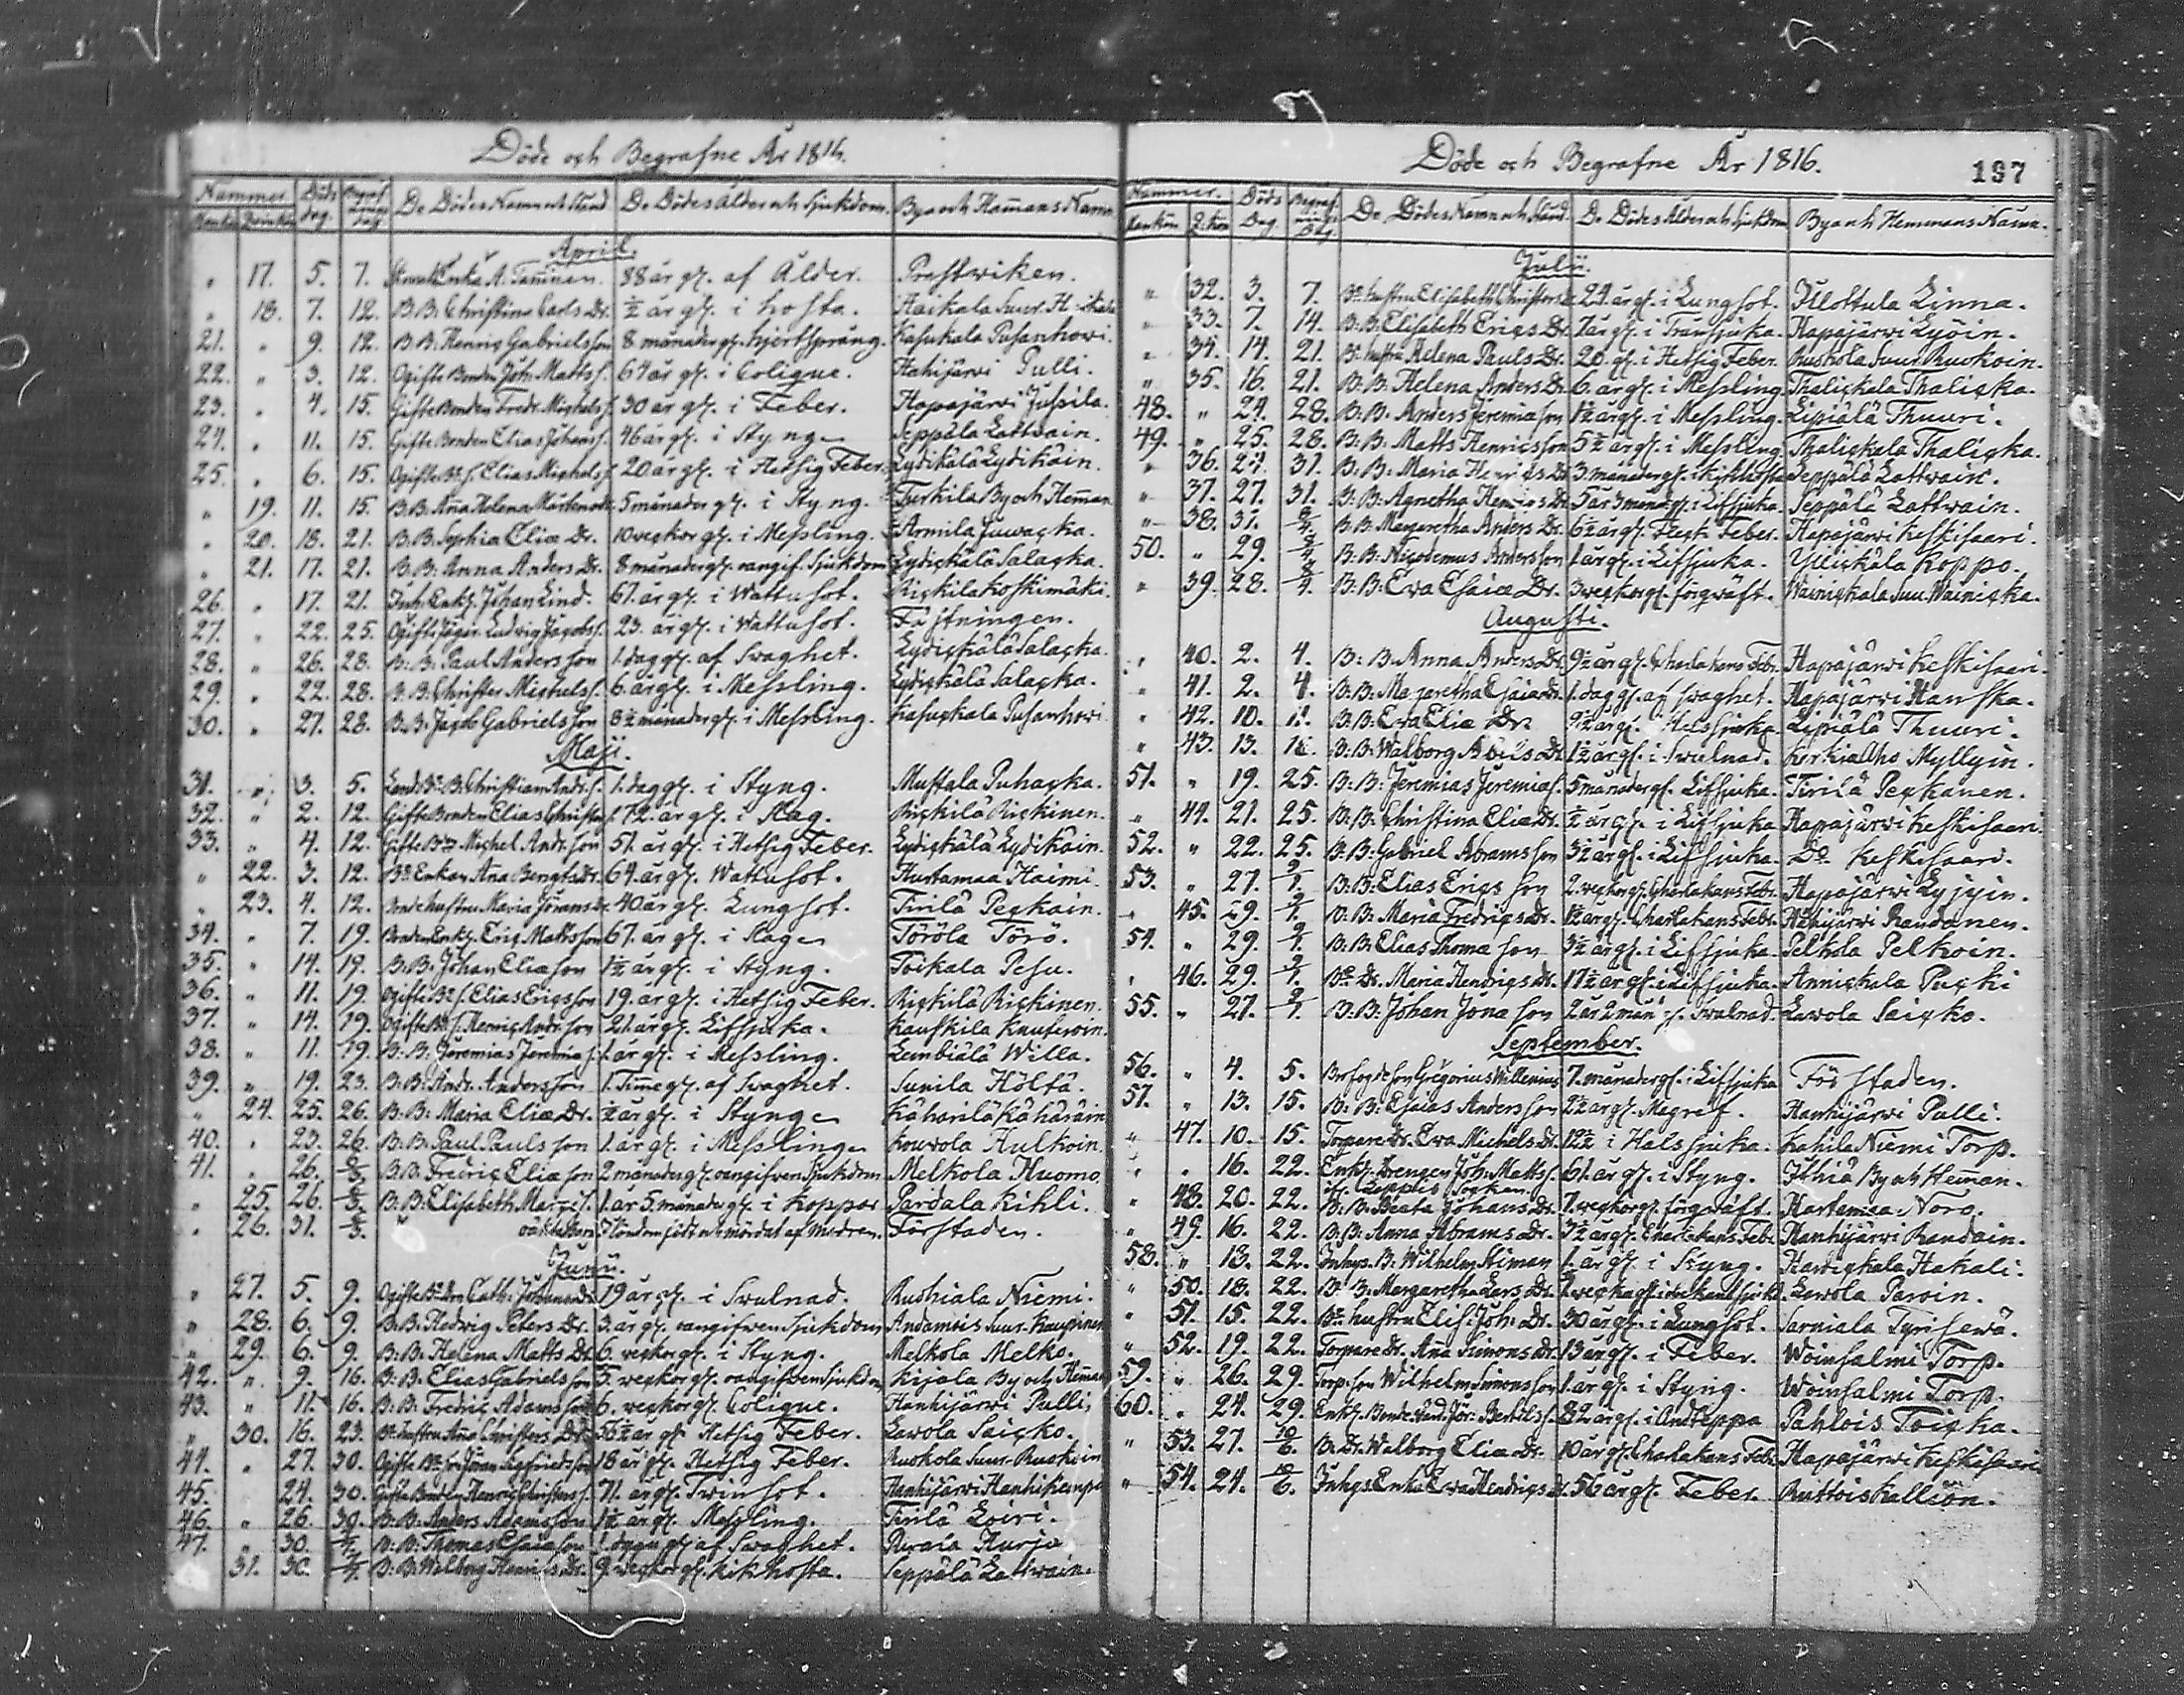 Döde och Begrafne År 1816.
Nummer Döds dag. Begraf nings dag De Dödes Namn och Stånd De Dödes Ålder och Sjukdom. By och Hemmans Namn
April.
" 17. 5. 7. Enka A. Tamminen. 88 år gl. af Ålder. Prestwiken.
" 18. 7. 12. B. B. Christina Carls Dr. ½ år gl. i hosta. Haikala Suur. H
21. " 9. 12. B. B. Henric Gabrielsson 8 månader gl. hjertsprång. Kasukala Pusanhowi.
22. " 3. 12. Ogifte Bonden Joh. Matts s. 67 år gl. i Colique. Hahijärwi Pulli.
23. " 4. 15. Gifte Bonden Fredr. Michels s. 30 år gl. i Feber. Hapajärwi Jussila.
24. " 11. 15. Gifte Bonden Elias Johans s. 46 år gl. i Styng. Seppälä Lattwain.
25. " 6. 15. Ogifte Bd. s. Elias Michels s. 20 år gl. i Hetsig Feber. Lydikälä Lydikäin.
" 19. 11. 15. B. B. Aña Helena Mårtens dr 5 månader gl. i Styng. Turkila By och Heman
" 20. 18. 21. B. B. Sophia Eliæ Dr. 10 weckor gl. i Messling. Armila Juwacka.
" 21. 17. 21. B. B. Anna Anders Dr. 8 månader gl. oangif. Sjukdom Lydickälä Salacka.
26. " 17. 21. Inh. Enkl. Johan Lind. 67. år gl. i Wattusot. Rickilä Koskimäki.
27. " 22. 25. Ogifte Jäger Ludvig Jacobs s. 23. år gl. i Wattusot. Fästningen.
28. " 26. 28. B. B. Paul Andersson 1. dag gl. af Swaghet. Lydickälä Salacka.
29. " 22. 28. B. B. Christer Michels s. 6. år gl. i Messling. Lydickälä Salacka.
30. " 27. 28. B. B. Jacob Gabrielsson 8½ månader gl. i Messling. Kasuckala Pusanhowi.
Maji.
31. " 3. 5. Lands Bd. B. Christian Andr. s. 1. dag gl. i Styng. Mustala Puhacka.
32. " 2. 12. Gifte Bonden Elias Christers s. 72. år gl. i Håg. Rickilä Rickinen.
33. " 4. 12. Gifte Bdn Michel Andr. son 51. år gl. i Hetsig Feber. Lydickälä Lydikäin.
" 22. 3. 12. Bd. Enkan Aña Bengts Dr. 64. år gl. Wattusot. Hurtamaa Haimi.
" 23. 4. 12. Bondehustru Maria Jörans Dr 40 år gl. Lungsot. Tirilä Peckain.
34. " 7. 19. Bonden Enkl. Eric Mattsson 67. år gl. i Håg. Törölä Törö.
35. " 14. 19. B. B. Johan Eliæ son 1½ år gl. i Styng. Toikala Pesu.
36. " 11. 19. Ogifte Bd. s. Elias Ericsson 19. år gl. i Hetsig Feber. Rickilä Rickinen.
37. " 14. 19. Ogifte Bd. s. Henric Andr. son 21. år gl. Lifsjuka. Kauskila
38. " 11. 19. B. B. Jeremias Jeremiæ s. 1. år gl. i Messling. Lembiälä Willa.
39. " 19. 23. B. B. Andr. Andersson 1. Time gl. af Swaghet. Sunila Höltä.
" 24. 25. 26. B. B. Maria Eliæ Dr. ½ år gl. i Styng. Kähärilä Kähäräin
40. " 23. 26. B. B. Paul Pauls son 1. år gl. i Messling. Kouwola Hulkoin.
41. " 26. 2/6. B. B. Fredric Eliæ son 2 månader gl. oangifwen Sjukdom Melkola Huomo.
" 25. 26. 2/6. B. B. Elisabeth 1. år 5. månader gl. i koppor Pardala Kihli.
" 26. 31. 2/6. oäkta Barn I Löndom födt och mördat af modren. Förstaden.
Junii.
" 27. 5. 9. Ogifte Bd. Dr Cath. Johans Dr 19 år gl. i Swulnad. Ruohiala Niemi.
" 28. 6. 9. B. B. Hedwig Peters Dr. 3. år gl. oangifwen Sjukdom Suur. Kauppinen
" 29. 6. 9. B. B. Helena Matts Dr. 6. weckor gl. i Styng. Melkola Melko.
42. " 9. 16. B. B. Elias Gabrielsson 5. weckor gl. oangifwen Sjukdom Kijala By och Heman
43. " 11. 16. B. B. Fredric Adamsson 6. weckor gl. Colique. Hanhijärwi Pulli.
" 30. 16. 23. Bd. hustru Aña Christers Dr 36½ år gl. Hetsig Feber. Lawola Saicko.
44. " 27. 30. Ogifte Bd. son Jöran Sigfriedsson 18 år gl. Hetsig Feber. Ruokola Suur. Ruokoin
45. " 24. 30. Gifte Bonden Henric Christers s. 71. år gl. Twinsot. Hanhijärwi Hanhikempi
46. " 26. 30. B. B. Anders Adamsson 1½ år gl. Messling. Tirilä Loiri.
47. " 30. 7/7. B. B. Thomas Esaiæ son 1. dygn gl. af Swaghet. Kurjo
" 31. 30. 7/7. B. B. Walborg Henrics Dr. 9. weckor gl. kikhosta. Seppälä Lattwain.
Döde och Begrafne År 1816. 197
Nummer. Mankön Q. kön Döds Dag. Begraf nings Dag De Dödes Namn och Stånd. De Dödes Ålder och Sjukdom By och Hemmans Namn.
Julii.
" 32. 3. 7. Bd. hustru Elisabeth Christers Dr 24 år gl. i Lungsot. Ylottula Linna.
" 33. 7. 14. B. B. Elisabeth Erics Dr. 7 år gl. i Hapajärwi Lyöin.
" 34. 14. 21. Bd. hustru Helena Pauls Dr. 20. gl. i Hetsig Feber. Ruokola Suur Ruokoin.
" 35. 16. 21. B. B. Helena Anders Dr. 6. år gl. i Messling. Thalickala Thalicka.
48. " 24. 28. B. B. Anders Jeremiæ son 1½ år gl. i Messling. Lipiälä Thuuri.
49. " 25. 28. B. B. Matts Henricsson 5½ år gl. i Messling. Thalickala Thalicka.
" 36. 27. 31. B. B. Maria Henrics Dr. 3. månader gl. kikhosta Seppälä Lattwain.
" 37. 27. 31. B. B. Agnetha Henrics Dr 5 år 3 månad gl. i Lifsjuka. Seppälä Lattwain.
" 38. 31. 8/4. B. B. Margaretha Anders Dr. 6½ år gl. Fläck Feber. Hapajärwi Keskisaari.
50. " 29. 8/4. B. B. Nicodemus Andersson 1 år gl. i Lifsjuka. Yllickälä Koppo.
" 39. 28. 8/4. B. B. Ewa Esaiæ Dr. 3 weckor gl. förqwäft. Wainickala Suu. Wainicka.
Augusti.
" 40. 2. 4. B. B. Anna Anders Dr. 9½ år gl. Charlakans Febr. Hapajärwi Keskisaari.
" 41. 2. 4. B. B. Margaretha Esaiæ Dr. 1. dag gl. af Swaghet. Hapajärwi Hanska.
" 42. 10. 11. B. B. Ewa Eliæ Dr. 9½ år gl. i Halssjuka Lipiälä Thuuri.
" 43. 13. 18. B. B. Walborg Abels Dr. 1½ år gl. i Swulnad. Korkia Aho Myllyin.
51. " 19. 25. B. B. Jeremias Jeremiæ s. 5 månader gl. Lifsjuka. Tirilä Peckanen.
" 44. 21. 25. B. B. Christina Eliæ Dr. ½ år gl. i Lifsjuka Hapajärwi Keskisaari.
52. " 22. 25. B. B. Gabriel Abramsson 3½ år gl. i Lifsjuka. Do. Keskisaari.
53. " 27. 9/1. B. B. Elias Ericsson 2. weckor gl. Charlakans Febr. Hapajärwi Lyjyin.
" 45. 29. 9/1. B. B. Maria Fredrics Dr. 1½ år gl. Charlakans Febr. Hahijärwi Randanen.
54. " 29. 9/1. B. B. Elias Thomæ son 3½ år gl. i Lifsjuka. Pelkola Pelkoin.
" 46. 29. 9/1. Bd. Dr. Maria Hendrics Dr. 17½ år gl. i Lifsjuka. Annickala Pucki
55. " 27. 9/1. B. B. Johan Jonæ son 2 år 2 mån gl. Swulnad. Lawola Saicko.
September.
56. " 4. 5. Brofogde son Gregorius Willenius 7. månader gl. i Lifsjuka Förstaden.
57. " 13. 15. B. B. Esaias Andersson 2½ år gl. Magref. Hanhijärwi Pulli.
" 47. 10. 15. Torpare Dr. Ewa Michels Dr. 12½ i Halssjuka. Kahila Niemi Torp.
" " 16. 22. Enkl. Drengen Joh. Matts s. 61. år gl. i Styng. Ihiä By och Heman.
ifr. Leppis Socken
" 48. 20. 22. B. B. Beata Johans Dr. 7. weckor gl. förqwäft. Hartamaa Noro.
" 49. 16. 22. B. B. Anna Abrams Dr. 3½ år gl. Charlakans Febr. Hanhijärwi Randain.
58. " 13. 22. Inhys. B. Wilhelm Himan 1. år gl. i Styng. Hardickala Hakali.
" 50. 18. 22. B. B. Margaretha Lars Dr. weckor gl. i okänd sjukd. Lawola Paroin.
" 51. 15. 22. Bd. hustru Elis. Joh. Dr. 30 år gl. i Lungsot. Sarniala Tyrisewä.
" 52. 19. 22. Torpare Dr. Aña Simons Dr. 13 år gl. i Feber. Woinsalmi Torp.
59. " 26. 29. Torp. son Wilhelm Simonsson 1. år gl. i Styng. Woinsalmi Torp.
60. " 24. 29. Enkl. Bonde Jör. Bertils s. 82 år gl. i Andteppa Pahlois Toicka.
" 53. 27. 10/6. B. Dr. Walborg Eliæ Dr. 10 år gl. Charlakans Febr. Hapajärwi Keskisaari
" 54. 24. 10/6. Inhys Enka Ewa Hendrics Dr. 56 år gl. Feber. Ruttois Kalliöin.